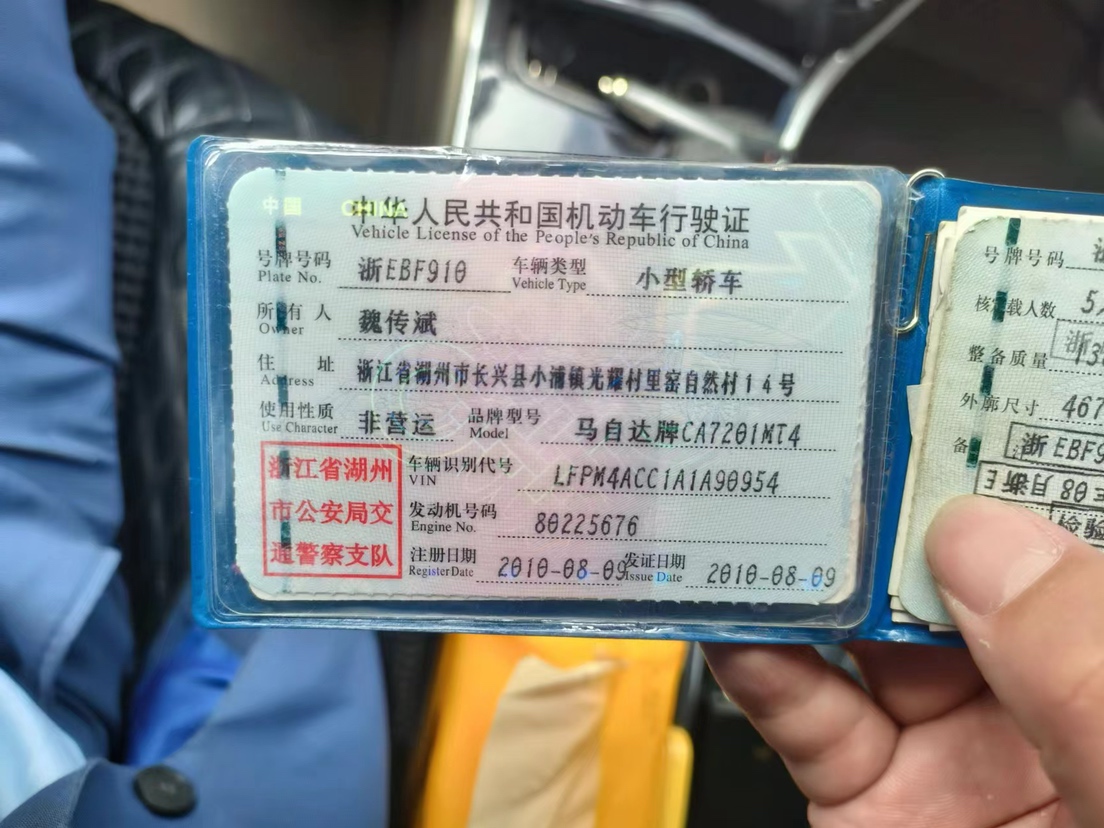 中国 CHINA
中华人民共和国机动车行驶证
Vehicle License of the People's Republic of China
号牌号码 浙EBF910 车辆类型 小型轿车
Plate No. Vehicle Type
所有人 魏传斌
Owner
住址 浙江省湖州市长兴县小浦镇光耀村里窑自然村14号
Address
使用性质 非营运 品牌型号 马自达牌CA7201MT4
Use Character Model
浙江省湖州
市公安局交
通警察支队
车辆识别代号 LFPM4ACC1A1A90954
VIN
发动机号码 80225676
Engine No.
注册日期 2010-08-09 发证日期 2010-08-09
Register Date Issue Date
号牌号码
核定载人数 5
整备质量
外廓尺寸 467
备
浙EBF9
检验